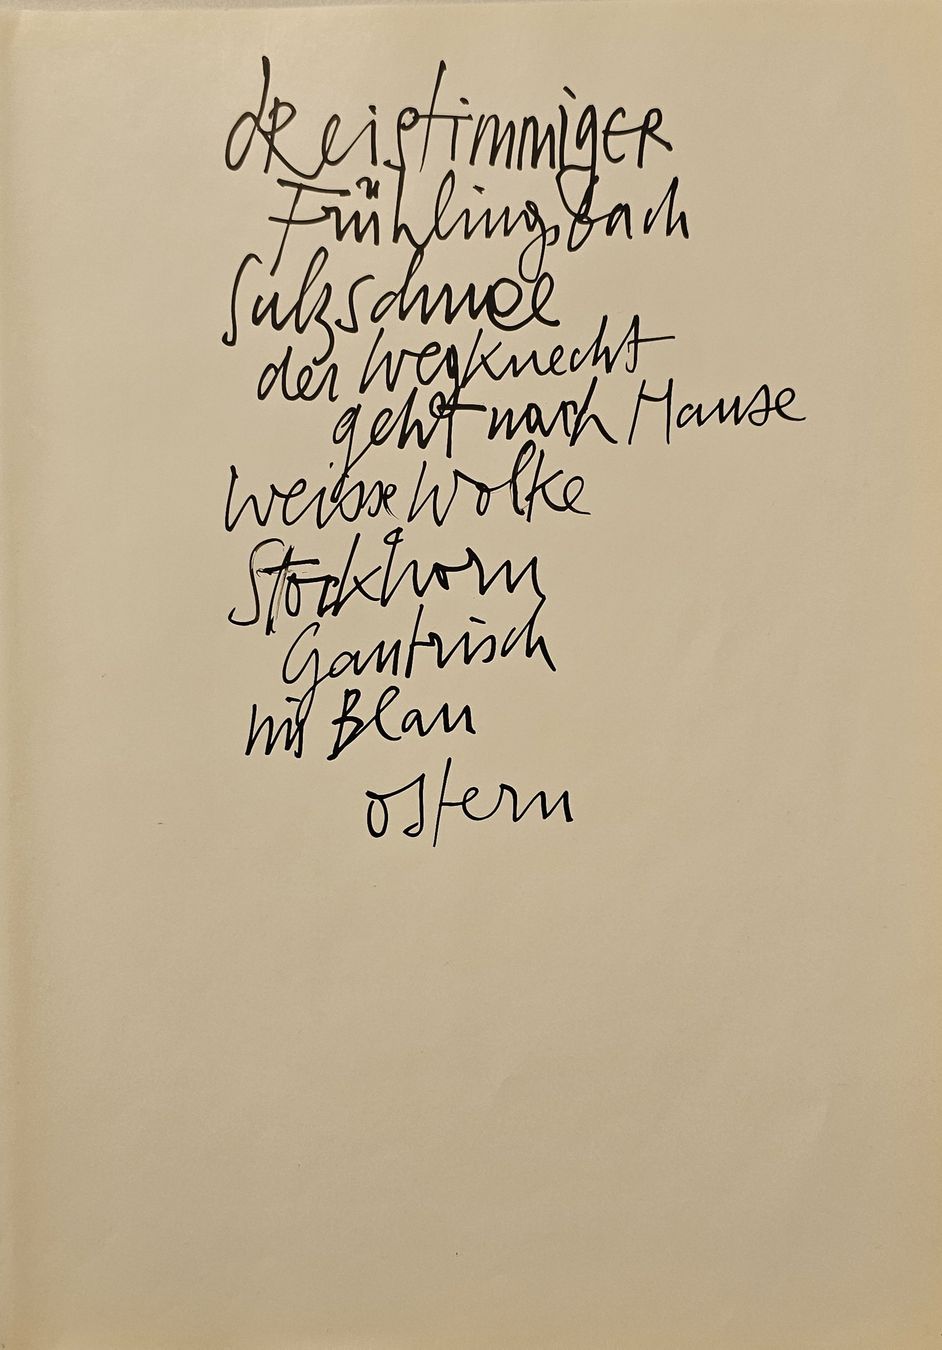 dReistimmigeR
Frühlingsbach
Sulzschnee
der Wegknecht
geht nach Hause
Weisse Wolke
Stockhorn
Gantrisch
mit Blau
ostern